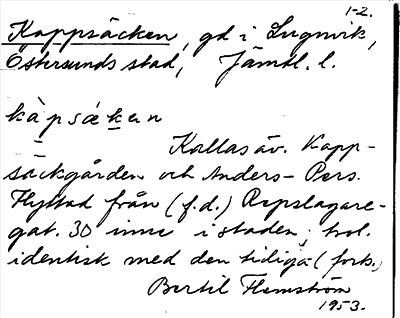 1-2.
Kappsäcken, gd i Lugnvik,
Östersunds stad, Jämtl. l.
kàpsák̲en
Kallas äv. Kapp-
säckgården och Anders-Pers.
Flyttad från (f.d.) Repslagare-
gat. 30 inne i staden; trol.
identisk med den tidiga (forts.)
Bertil Flemström
1953.